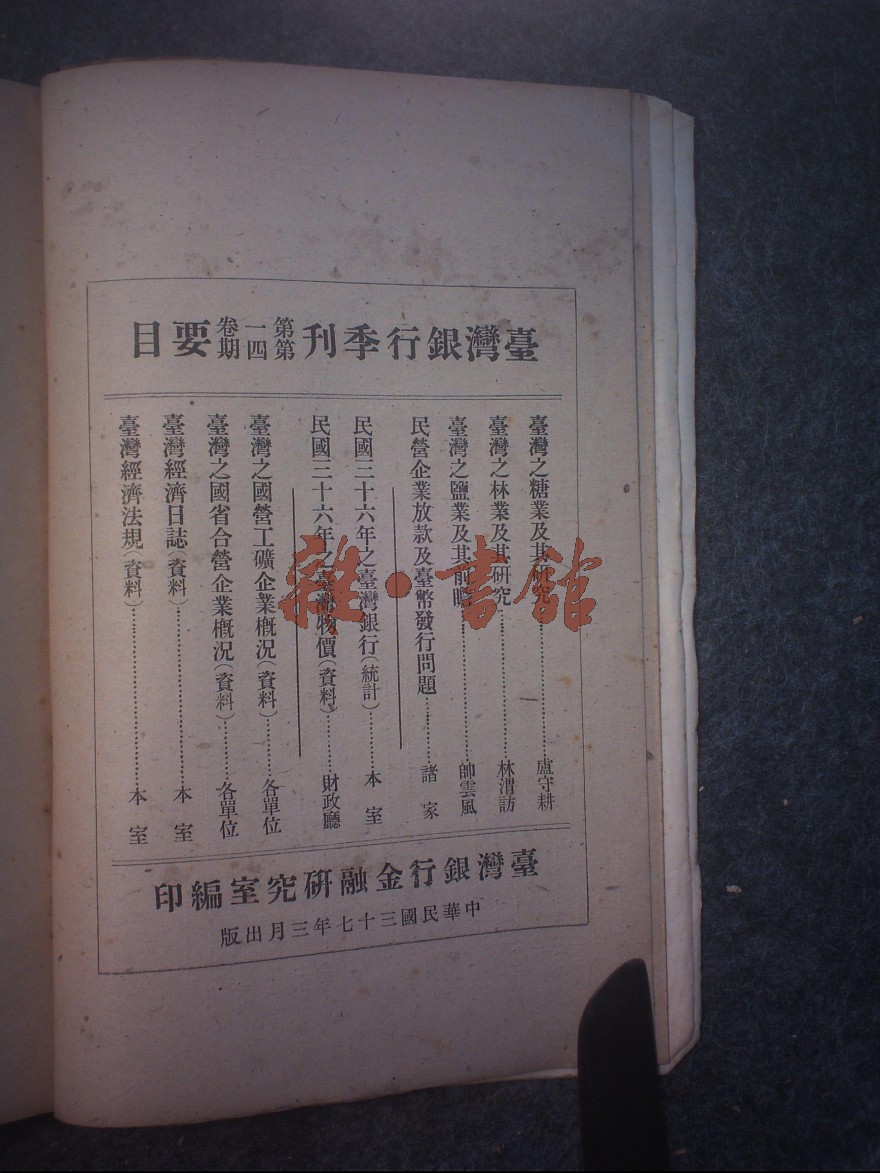 臺灣銀行季刊第一卷第四期要目
臺灣之糖業及其研究………盧守耕
臺灣之林業及其研究………林渭訪
臺灣之鹽業及其前瞻………帥雲風
民營企業放款及臺幣發行問題………諸家
民國三十六年之臺灣銀行(統計)………本室
民國三十六年之臺灣物價(資料)………財政廳
臺灣之國營工礦企業概況(資料)………各單位
臺灣之國省合營企業概況(資料)………各單位
臺灣經濟日誌(資料)………本室
臺灣經濟法規(資料)………本室
臺灣銀行金融研究室編印
中華民國三十七年三月出版
雜·書館